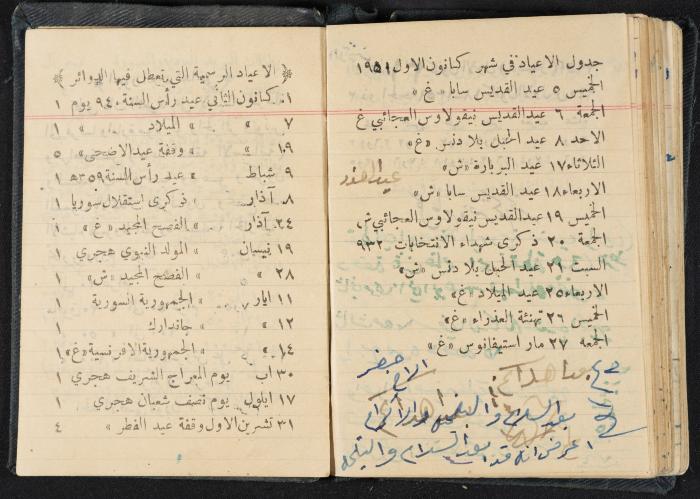 جدول الاعياد في شهر كانون الاول ١٩٥١
الخميس ٥ عيد القديس سابا «غ»
الجمعة ٦ عيد القديس نيقولاوس العجائبي غ
الاحد ٨ عيد الحبل بلا دنس «غ»
الثلاثاء ١٧ عيد البربارة «ش»
الاربعاء ١٨ عيد القديس سابا «ش»
الخميس ١٩ عيد القديس نيقولاوس العجائبي ش
الجمعة ٢٠ ذكرى شهداء الانتخابات ٩٣٢
السبت ٢١ عيد الحبل بلا دنس «ش»
الاربعاء ٢٥ عيد الميلاد «غ»
الخميس ٢٦ تهنئة العذراء «غ»
الجمعة ٢٧ مار استفانوس «غ»
بعد السلام والتحية
اعرض انه قد بعد السلام والتحية
﴿ الاعياد الرسمية التي تتعطل فيها الدوائر ﴾
١ كانون الثاني عيد رأس السنة ٩٤٠ يوم ١
٧ » » الميلاد » ١
١٩ » » وقفة عيد الاضحى » ٥
٩ شباط » عيد رأس السنة ١٣٥٩ه ١
٨ آذار » ذكرى استقلال سوريا ١
٢٤ آذار » الفصح المجيد «غ» ١
١٩ نيسان » المولد النبوي هجري ١
٢٨ » » الفصح المجيد «ش» ١
١١ ايار » الجمهورية السورية ١
١٢ » » جاندارك ١
١٤ » » الجمهورية الافرنسية «غ» ١
٣٠ آب يوم المعراج الشريف هجري ١
١٧ ايلول يوم نصف شعبان هجري ١
٣١ تشرين الاول وقفة عيد الفطر » ٤